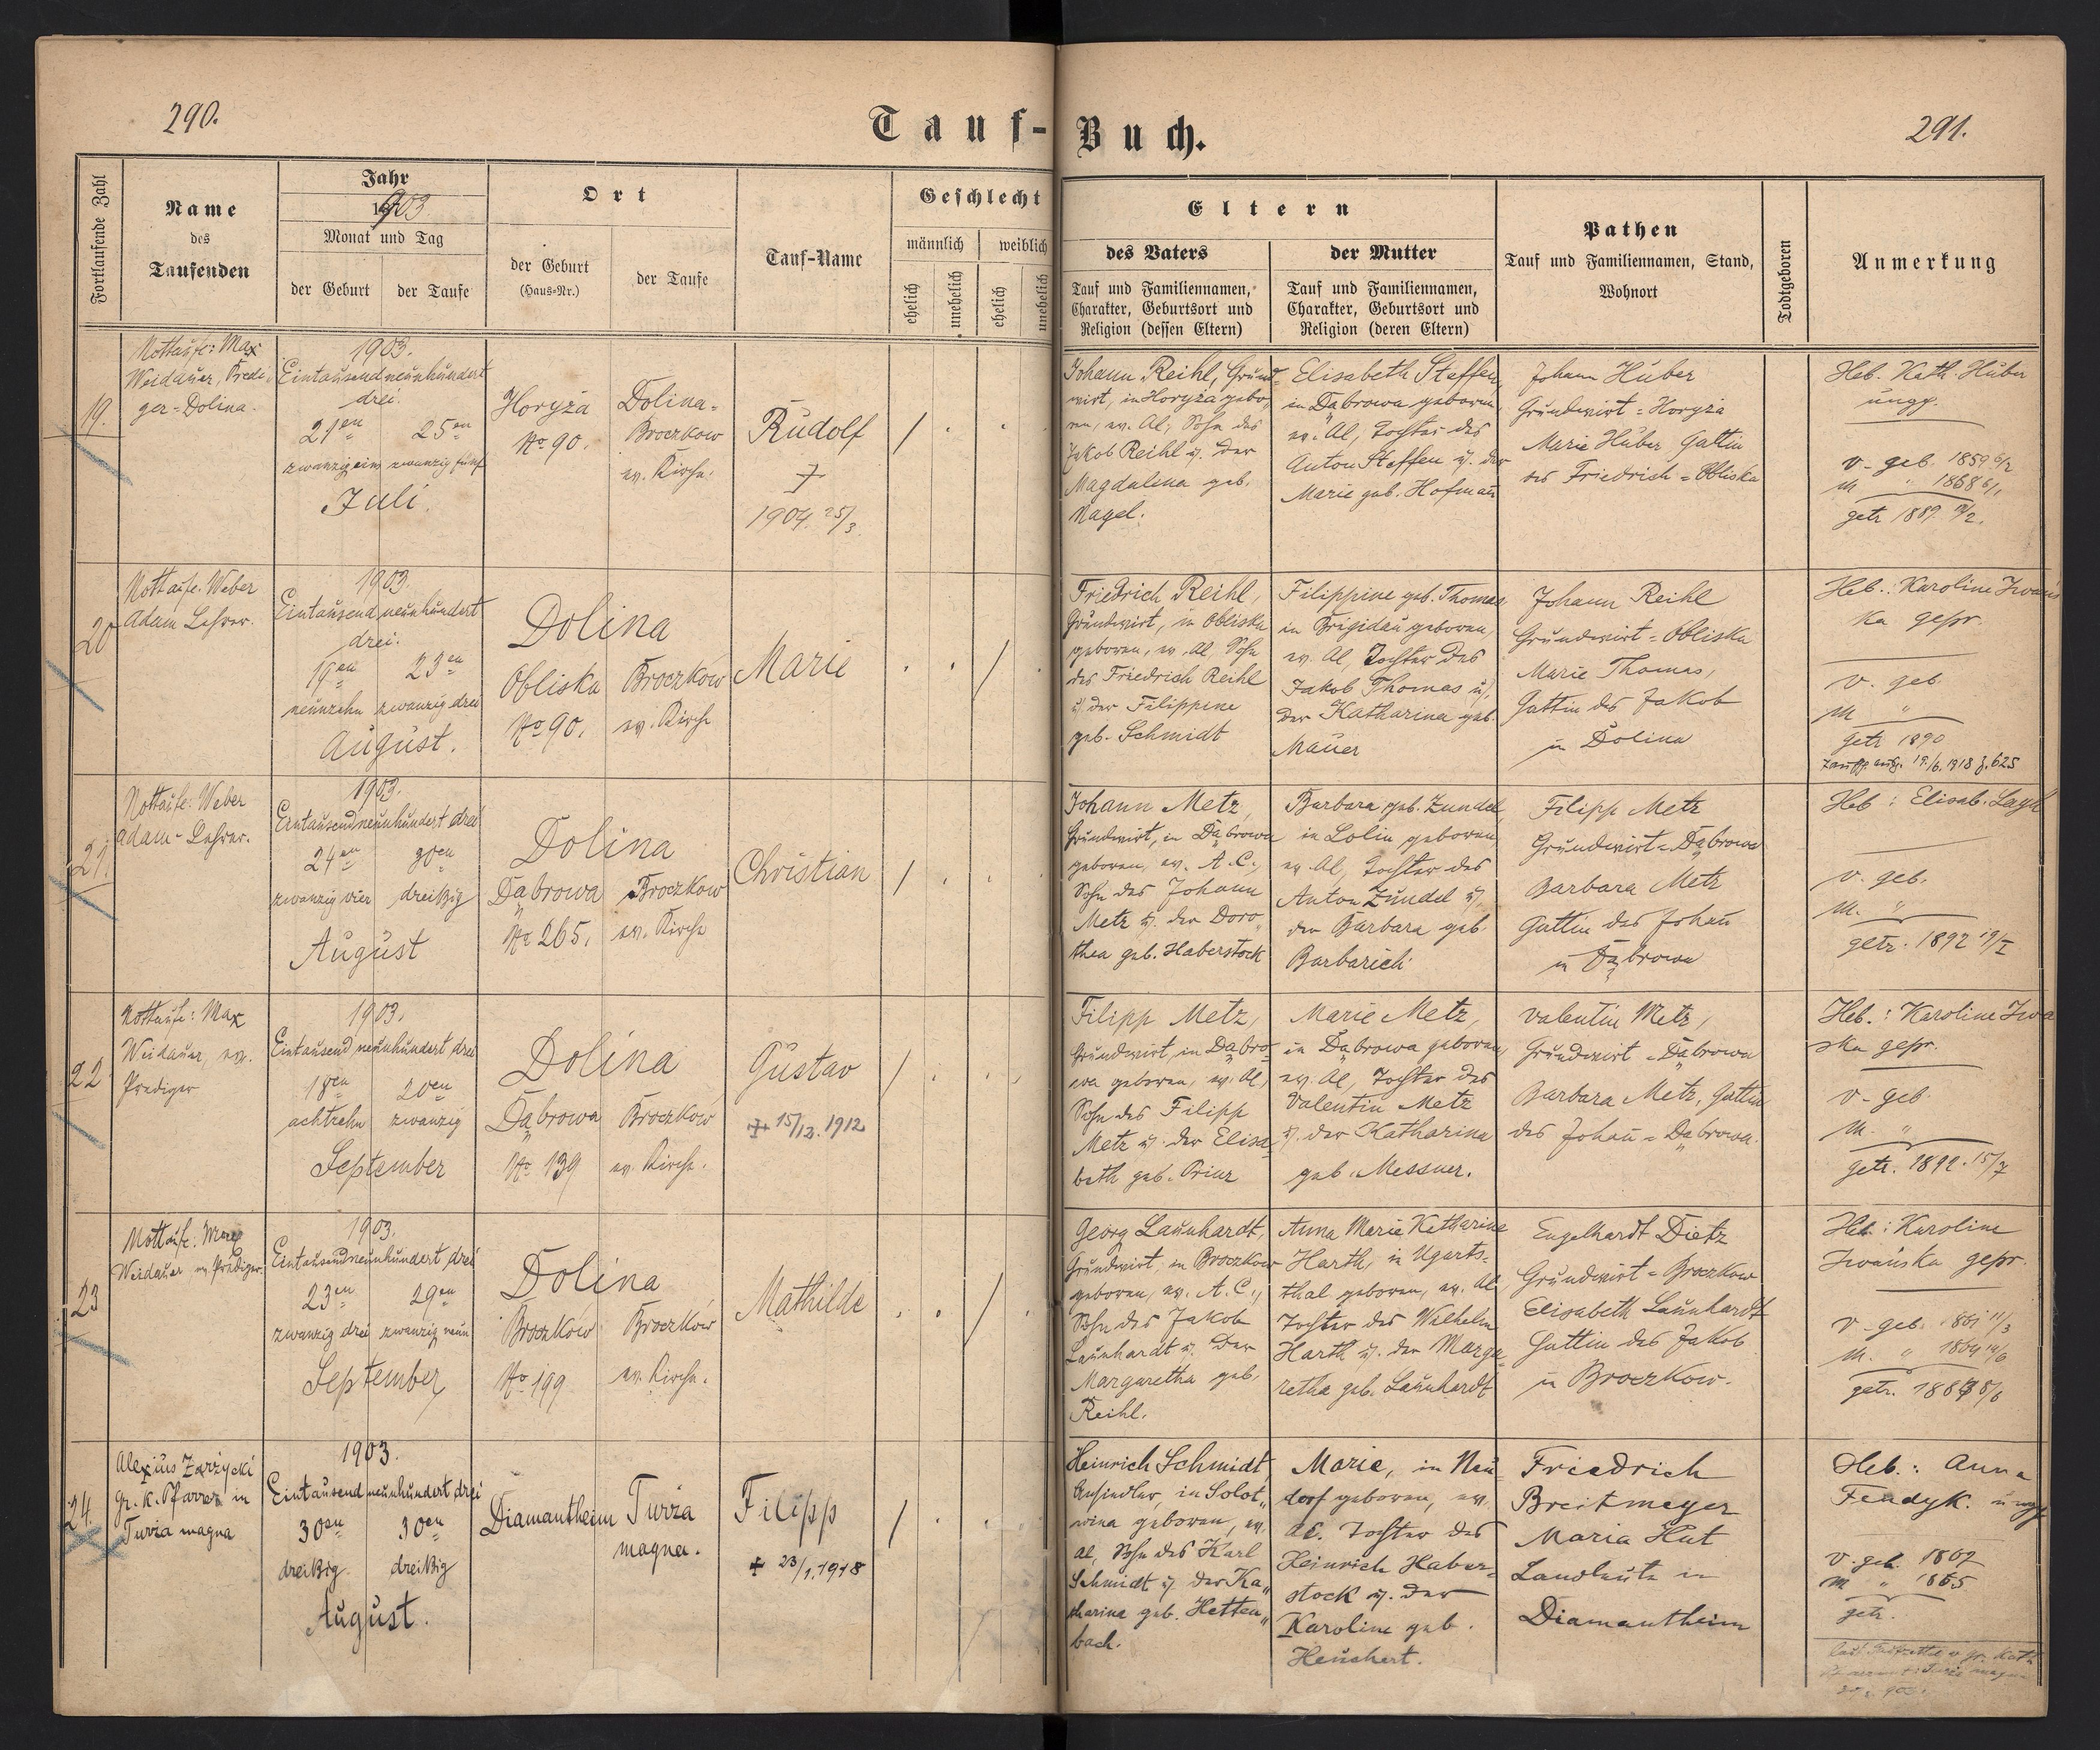 290.
Tauf-Buch.
291.
Fortlaufende Zahl
Name
des
Taufenden
Jahr
1903
Monat und Tag
der Geburt
der Taufe
Ort
der Geburt
(Haus-Nr.)
der Taufe
Tauf-Name
Geschlecht
männlich
weiblich
ehelich
unehelich
ehelich
unehelich
Eltern
des Vaters
Tauf und Familiennamen,
Charakter, Geburtsort und
Religion (dessen Eltern)
der Mutter
Tauf und Familiennamen,
Charakter, Geburtsort und
Religion (deren Eltern)
Pathen
Tauf und Familiennamen, Stand,
Wohnort
Todtgeboren
Anmerkung
19.
Nottaufe: Max
Weidauer, Predi-
ger = Dolina.
1903.
Eintausendneunhundert
drei.
21en 25en
zwanzigeins zwanzig fünf
Juli.
Horyza
No 90.
Dolina-
Broczkow
ev. Kirche.
Rudolf
†
1904 25/3
/
Johann Reihl, Grund-
wirt, in Horyza gebo-
ren, ev. Al, Sohn des
Jakob Reihl u. der
Magdalena geb.
Nagel.
Elisabeth Steffen,
in Dąbrowa geboren,
ev. Al, Tochter des
Anton Steffen u. der
Marie geb. Hofman̄
Johann Huber
Grundwirt = Horyza
Marie Huber Gattin
des Friedrich = Obliska
Heb. Kath. Huber
ungp.
v. geb. 1859 6/2
m " 1868 6/1
getr 1889
20
Nottaufe: Weber
Adam Lehrer.
1903.
Eintausend neunhundert
drei.
19en 23en
neunzehn zwanzig drei
August.
Dolina
Obliska
No 90.
Broczkow
ev. Kirche
Marie
/
Friedrich Reihl,
Grundwirt, in Obliska
geboren, ev. Al, Sohn
des Friedrich Reihl
u. der Filippine
geb. Schmidt
Filippine geb. Thomas
in Brigidau geboren,
ev. Al, Tochter des
Jakob Thomas u.
der Katharina geb.
Mauer
Johann Reihl
Grundwirt = Obliska
Marie Thomas,
Gattin des Jakob
in Dolina
Heb.: Karoline Iwańs
ka gepr.
v. geb.
m "
getr 1890
Taufsch. ausg. 19/6. 1918 z. 625
21.
Nottaufe: Weber
Adam - Lehrer.
1903.
Eintausendneunhundert drei
24en 30en
zwanzig vier dreißig
August
Dolina
Dąbrowa
No 265.
Broczkow
ev. Kirche
Christian
/
Johann Metz,
Grundwirt, in Dąbrowa
geboren, ev. A. C.,
Sohn des Johann
Metz u. der Doro-
thea geb. Haberstock
Barbara geb. Zundel,
in Lolin geboren,
ev. Al, Tochter des
Anton Zundel u.
der Barbara geb.
Barbarich
Filipp Metz
Grundwirt = Dąbrowa
Barbara Metz
Gattin des Johan̄
in Dąbrowa
Heb: Elisab.
v. geb.
m. "
getr. 1892 19/I
22
Nottaufe: Max
Weidauer, ev.
Prediger
1903.
Eintausend neunhundert drei
18en 20en
achtzehn zwanzig
September
Dolina
Dąbrowa
No 139
Broczkow
ev. Kirche.
Gustav
† 15/12. 1912
/
Filipp Metz,
Grundwirt, in Dąbro-
wa geboren, ev. Al,
Sohn des Filipp
Metz u. der Elisa-
beth geb. Prinz
Marie Metz,
in Dąbrowa geboren,
ev. Al, Tochter des
Valentin Metz
u. der Katharina
geb. Messner.
Valentin Metz,
Grundwirt = Dąbrowa
Barbara Metz, Gattin
des Johan̄ = Dąbrowa.
Heb.: Karoline Iwa
ska gepr.
v. geb.
m. "
getr. 1892. 15/7
23
Nottaufe: Max
Weidauer, ev. Prediger.
1903.
Eintausendneunhundert drei
23en 29en
zwanzig drei zwanzig neun
September
Dolina
Broczkow
No 199
Broczkow
ev. Kirche.
Mathilde
/
Georg Launhardt,
Grundwirt, in Broczkow
geboren, ev. A. C.,
Sohn des Jakob
Launhardt u. der
Margaretha geb.
Reihl.
Anna Marie Katharine
Harth, in Ugarts-
thal geboren, ev. Al,
Tochter des Wilhelm
Harth u. der Marga-
retha geb. Launhardt
Engelhardt Dietz
Grundwirt = Broczkow
Elisabeth Launhardt
Gattin des Jakob
in Broczkow.
Heb: Karoline
Iwańska gepr.
v. geb. 1861 11/3
m. " 1864 14/6
getr.
24.
Alexius Zarzycki
gr. k. Pfarrer in
Turza magna
1903.
Eintausend neunhundert drei
30en 30en
dreißig. dreißig
August.
Diamantheim
Turza
magna.
Filipp
† 23/1. 1918
/
Heinrich Schmidt,
Ansiedler, in Solot-
wina geboren, ev.
Al, Sohn des Karl
Schmidt u. der Ka-
tharina geb. Hetten-
bach.
Marie, in Neu-
dorf geboren, ev.
Al. Tochter des
Heinrich Haber-
stock u. der
Karoline geb.
Heuchert.
Friedrich
Breitmeyer
Maria Hut
Landleute in
Diamantheim
Heb.: Anna
Fendyk. ungp
v. geb. 1862
m " 1865
getr.